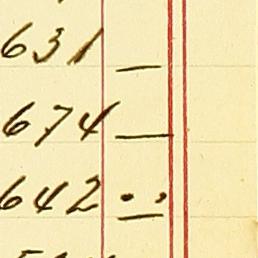 631 —
674 —
642 "